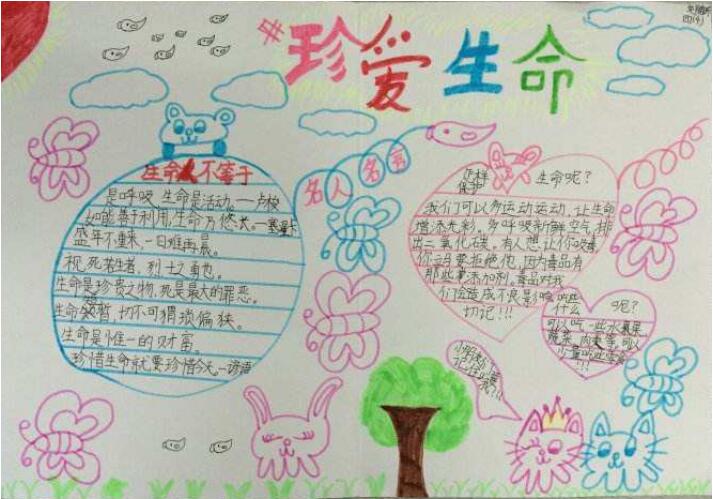 珍爱生命
四(4)
生命不等于
是呼吸,生命是活动。—卢梭
如能善于利用,生命乃悠长。—塞涅卡
盛年不重来,一日难再晨。
视死若生者,烈士之勇也。
生命是珍贵之物,死是最大的罪恶。
生命短暂,切不可猥琐偏狭。
生命是惟一的财富。
珍惜生命就要珍惜今天。—谚语
名人名言
怎样
保护
生命呢?
我们可以多运动运动,让生命
增添光彩。多呼吸新鲜空气,排
出二氧化碳。有人想让你吸毒
你必要拒绝他,因为毒品有
那些
们会造成不良影响
切记!!!
吃些
什么
呢?
可以吃一些水果
蔬菜、肉类等,可以
少量吃些零食
小朋友们
记住
哦!!!